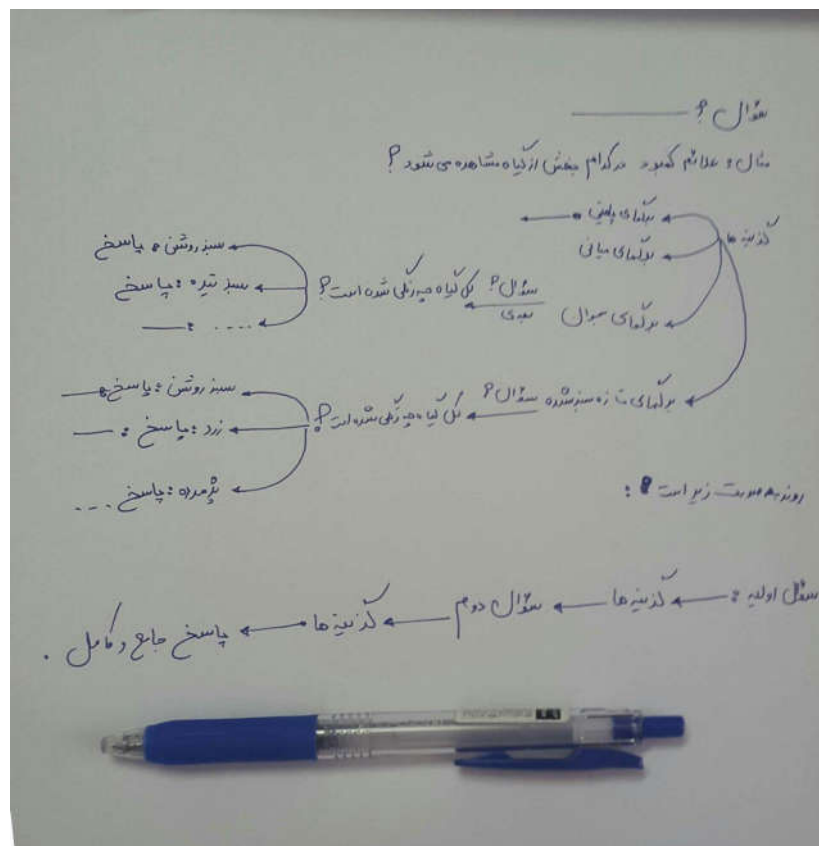 سؤال ؟
مثال : علائم کمبود در کدام بخش از گیاه مشاهده می شود ؟
گزینه ها
برگهای پایینی
برگهای میانی
برگهای جوان سؤال بعدی ؟ کل گیاه چه رنگی شده است ؟
سبز روشن : پاسخ
سبز تیره : پاسخ
.... :
برگهای تازه سبز شده سؤال ؟ کل گیاه چه رنگی شده است ؟
سبز روشن : پاسخ
زرد : پاسخ :
پژمرده : پاسخ ...
روند به صورت زیر است :
سؤال اولیه : گزینه ها سؤال دوم گزینه ها پاسخ جامع و کامل .